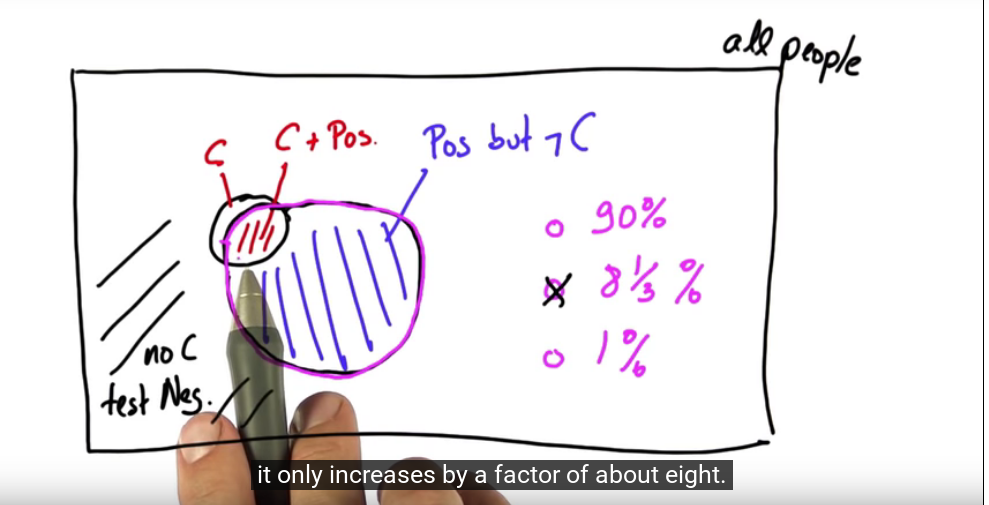 all people
C
C + Pos.
Pos but ¬ C
90%
8 1/3 %
1%
no C
test Neg.
it only increases by a factor of about eight.